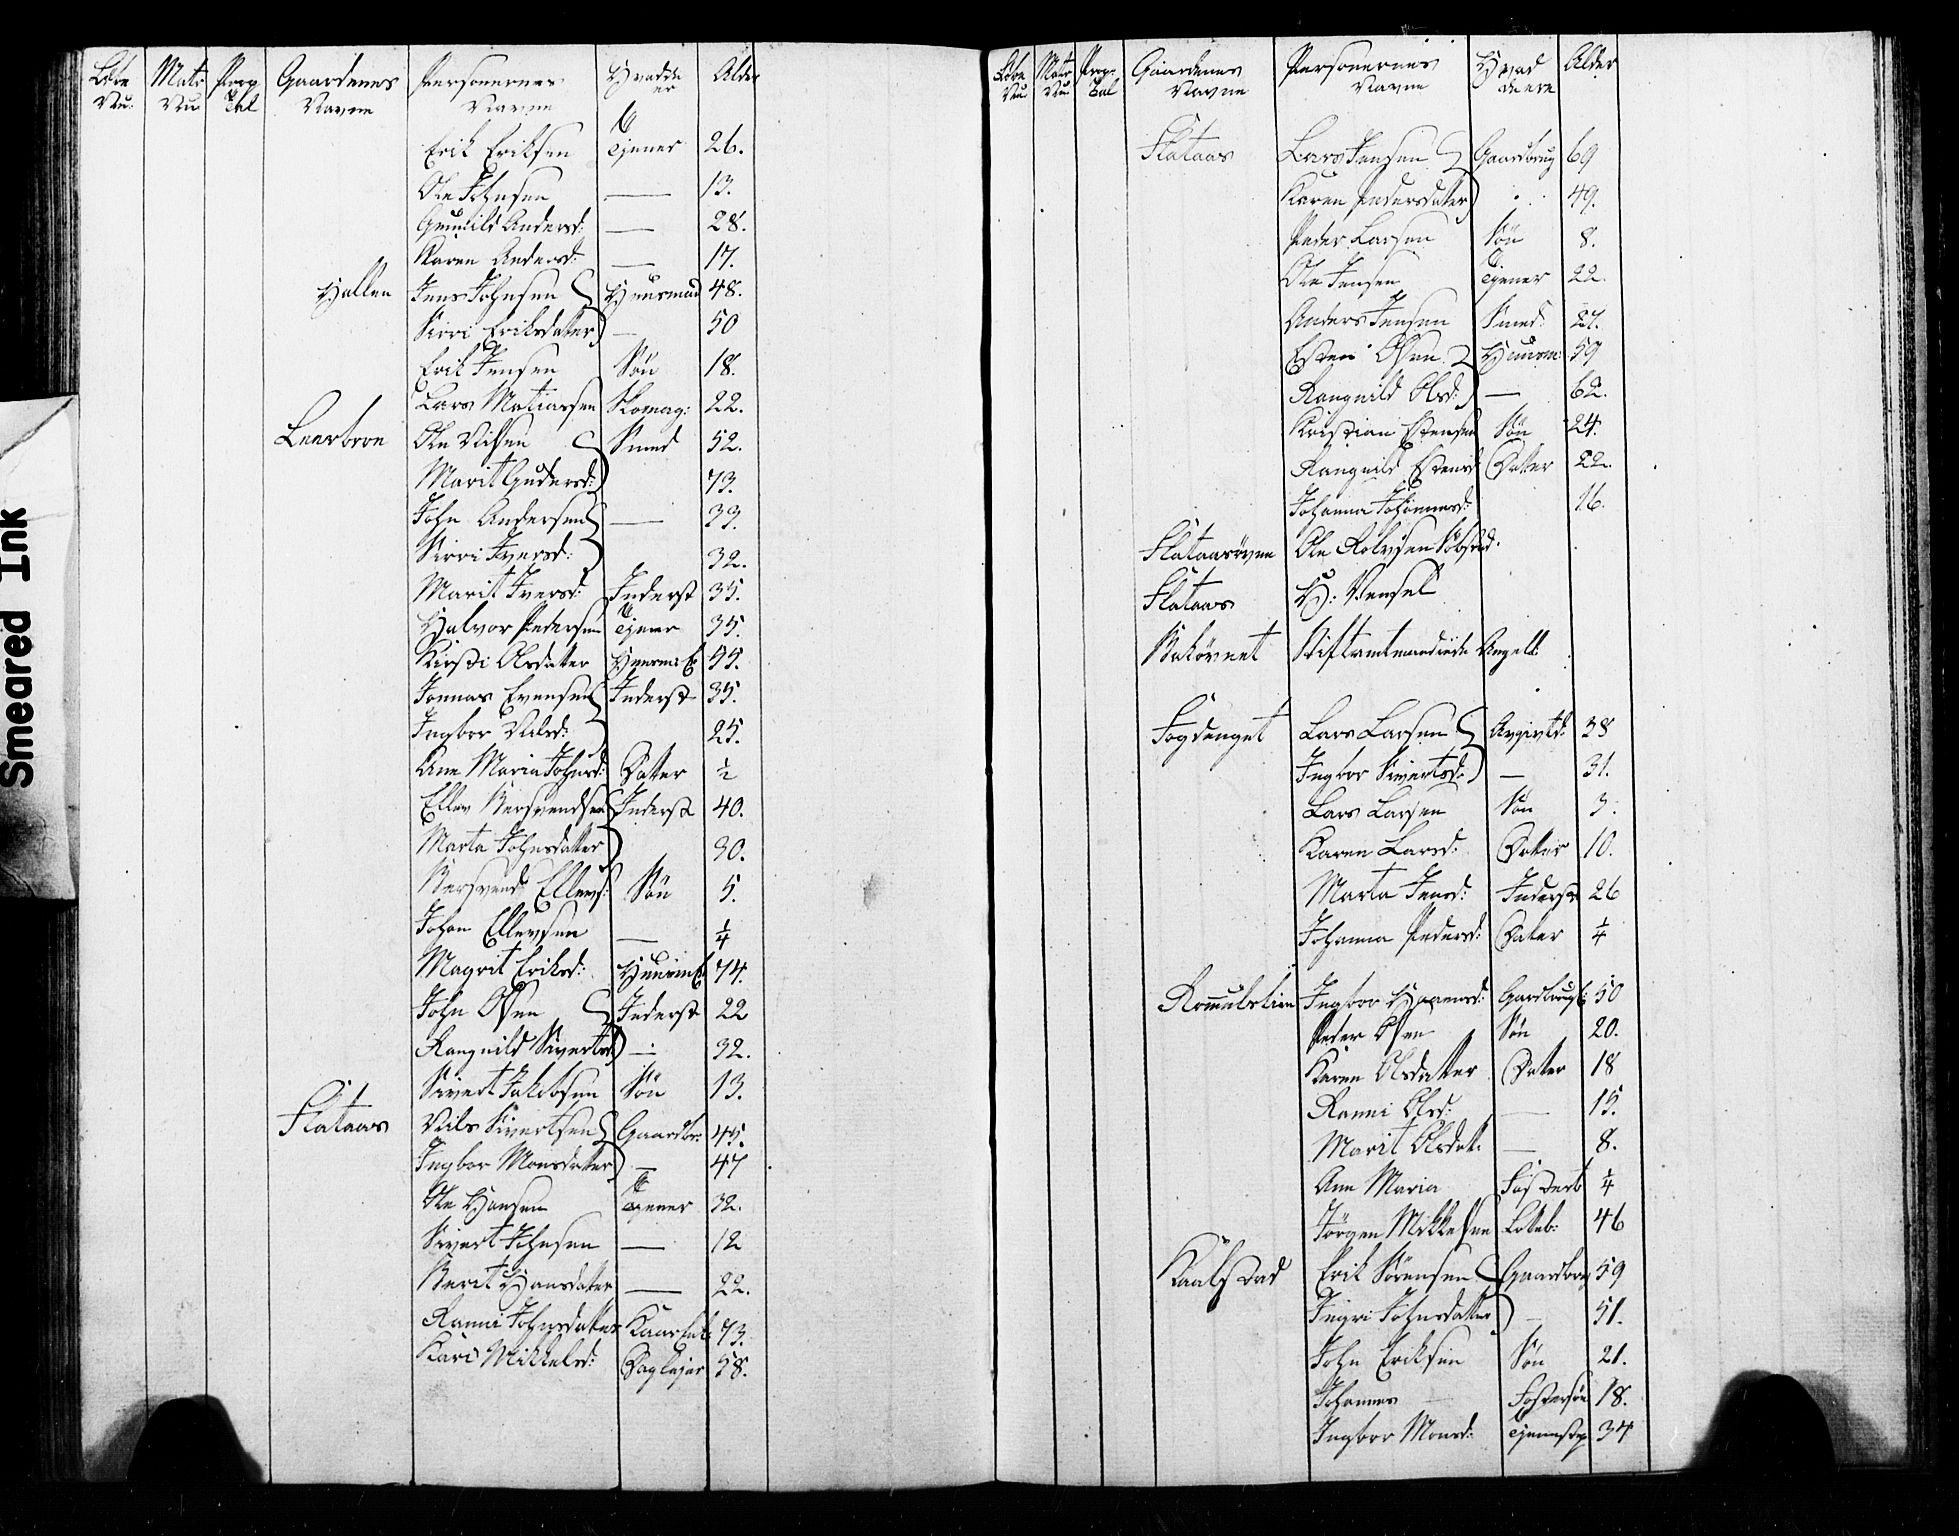 Smeared Ink
Løbe Nu: Matr Nu Prog Tal Gaardenes Navne Personernes Navne Hvadde er Alder
Erik Eriksen Tjener 26.
Ole Johnsen — 13.
Gunild Andersd: — 28.
Karen Andersd: — 17.
Hallen Jens Johnsen Huusmad 48.
Sirri Eriksdatter — 50
Erik Jensen Søn 18.
Lars Matiassen Skomag: 22.
Leerbroe Ole Nilsen Smed 52.
Marit Gudersd: 73.
John Andersen — 33.
Sirri Iversd: 32.
Marit Iversd: Inderst 35.
Halvor Pedersen Tjener 35.
Kirsti Olsdatter 55.
Jonnas Evensen Inderst 35.
Ingbor Nilsd: 25.
Ane Maria Johnsd: Dater ½
Ellev Bersvendsen Inderst 40.
Marta Johnsdatter 30.
Bersvend Ellevs: Søn 5.
Johan Ellevsen — ¼
Magrit Eriksd: 74.
John Olsen Inderst 22
Rangnild Sivertsd — 32.
Sivert Jakobsen Søn 13.
Flataas Nils Sivertsen Gaardbr: 45.
Ingbor Monsdatter — 47
Ole Hansen Tjener 32.
Sivert Johnsen — 12
Berit Hansdatter — 22.
Ranni Johnsdatter 73.
Kari Mikkelsd: Daglejer 58.
Løbe Nu: Matr Nu Prog: Tal Gaardenes Navne Personernes Navne Hvad de ere Alder
Flataas Lars Jensen Gaardbrug 69
Karen Pedersdatter 49.
Peder Larsen Søn 8.
Ole Jensen Tjener 22.
Anders Jensen Smed: 27.
Esten Olsen Huusm: 59
Rangnild Olsd: — 62.
Kristian Estensen Søn 24.
Rangnild Estensd Dater 22.
Johanna Johannesd: 16.
Flataasøyen Ole Rolvsen
Flataas H: Vensel
Bakøvnet Stiftamtmandinde Angell
Fogdenget Lars Larsen 38
Ingbor Sivertsd: — 31.
Lars Larsen Søn 3.
Karen Larsd: Datter 10.
Marta Jensd: Inderst 26
Johanna Pedersd: Dater ¼
Ingbor 50
Peder Olsen Søn 20.
Karen Olsdatter Dater 18
Ranni Olsd: — 15.
Marit Olsdat. — 8.
Ane Maria Fosterb ¼
Jørgen Mikkelsen 46
Kaalstad Erik Sörensen Gaardbrug 59
Ingri Johnsdatter — 51.
John Eriksen Søn 21.
Johannes — Fostersøn 18.
Ingbor Monsd: 34